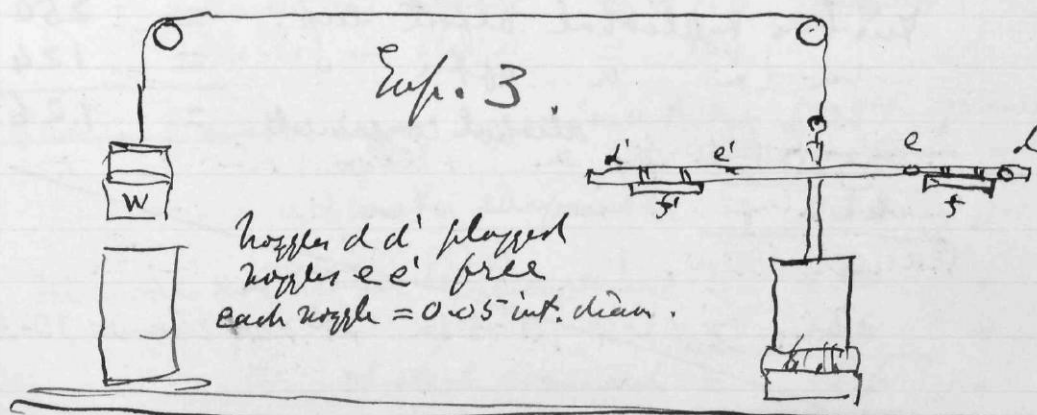 Exp. 3.
d' e' e d
f' f
W
Nozzles d d' plugged
nozzles e e' free
each nozzle = 0.05 int. diam.